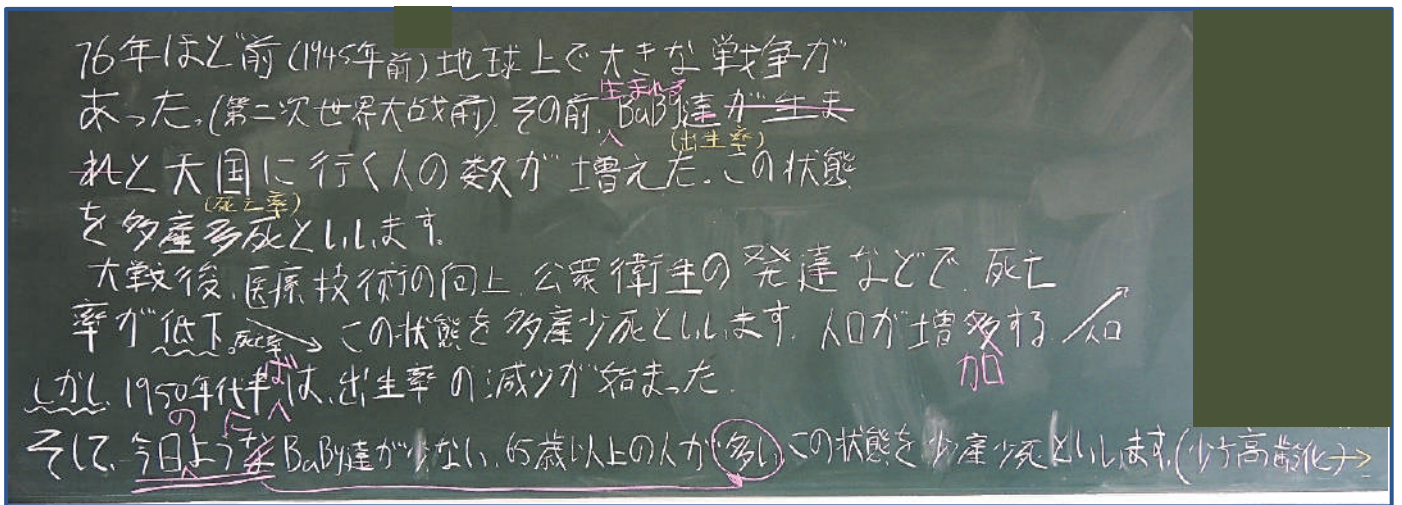 76年ほど前(1945年前)地球上で大きな戦争が
あった。(第二次世界大战前)その前、BaBy達が生ま
生まれる
(出生率)
れと天国に行く人の数が増えた。この状態
(死亡率)
を多産多死といいます。
大戦後、医療技術の向上、公衆衛生の発達などで、死亡
率が低下。死亡率 この状態を多産少死といいます。人口が増多する 人口
加
しかし、1950年代半ばは、出生率の減少が始まった。
の に
そして、今日ような BaBy達が少ない、65歳以上の人が多いこの状態を少産少死といいます。(少子高齢化)→